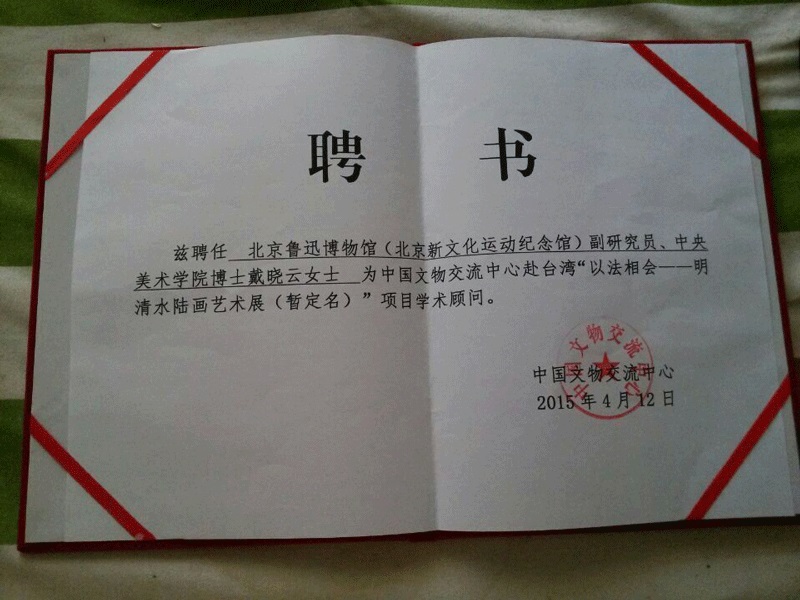 聘 书
兹聘任 北京鲁迅博物馆（北京新文化运动纪念馆）副研究员、中央
美术学院博士戴晓云女士 为中国文物交流中心赴台湾“以法相会——明
清水陆画艺术展（暂定名）”项目学术顾问。
中国文物交流中心
中国文物交流中心
2015 年 4 月 12 日